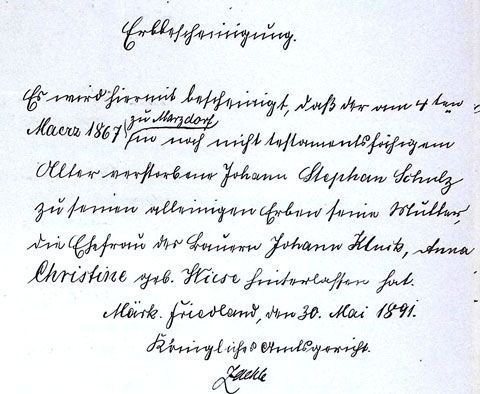 Erbbescheinigung.
Es wird hiermit bescheinigt, daß der am 4ten
zu Marzdorf
Maerz 1867 im noch nicht testamentsfähigem
Alter verstorbene Johann Stephan Schulz
zu seinen alleinigen Erben seine Mutter,
die Ehefrau des Bauern Johann Klnik, Anna
Christine geb. Wiese hinterlassen hat.
Märk. Friedland, den 30. Mai 1891.
Königliches Amtsgericht.